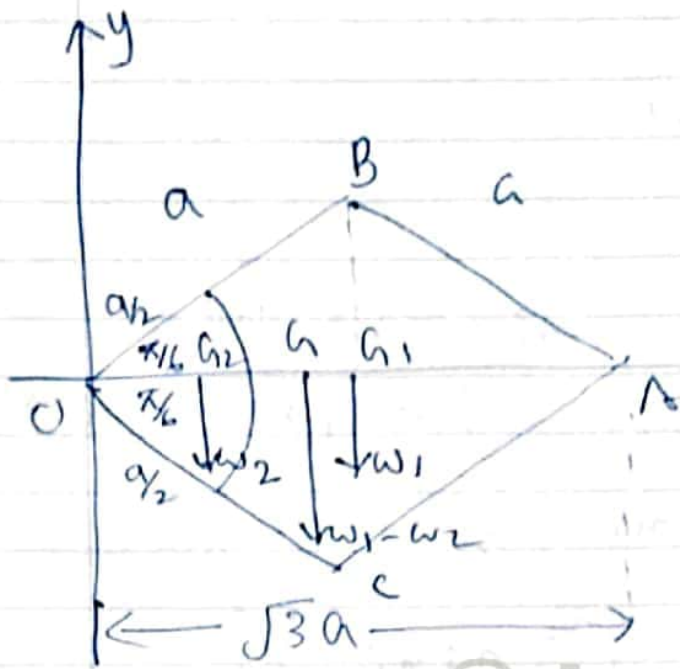 y
B
a
a
a/2
π/6
G2
G
G1
O
π/6
A
a/2
w2
w1
w1-w2
C
√3 a